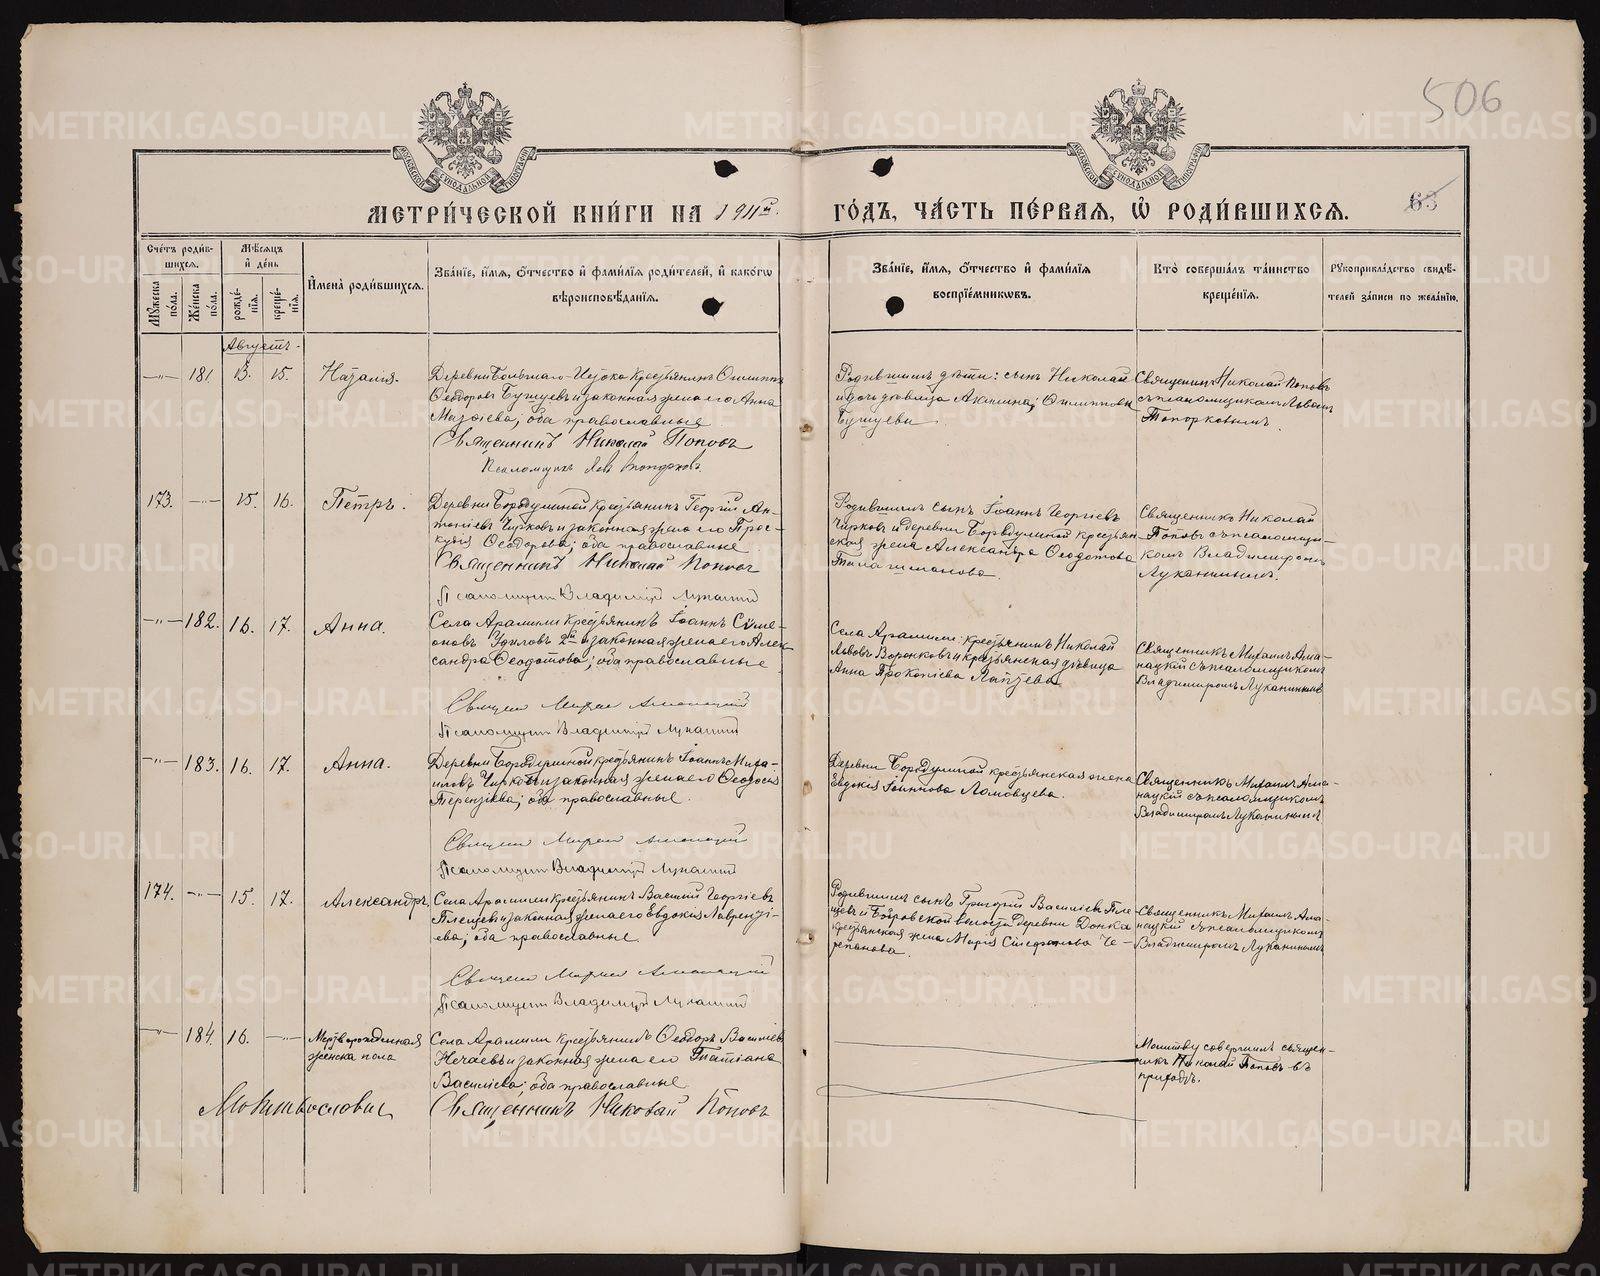 506
МЕТРИ́ЧЕСКОЙ КНИ́ГИ НА 1911й
ГО́ДЪ, ЧА́СТЬ ПЕ́РВАЯ, Ѡ҆ РОДИ́ВШИХСЯ.
63
Сче́тъ роди́в-
шихся.
Му́жеска по́ла.
Же́нска по́ла.
Мѣ́сяцъ
и҆ де́нь
рожде́-
нїя.
креще́-
нїя.
И҆мена̀ роди́вшихся.
Зва́нїе, и҆́мя, ѻ҆́тчество и҆ фами́лїя роди́телей, и҆ како́гѡ
вѣроисповѣ́данїя.
Зва́нїе, и҆́мя, ѻ҆́тчество и҆ фами́лїя
воспрїе́мникѡвъ.
Кто̀ соверша́лъ та́инство
креще́нїя.
Рꙋкоприкла́дство свидѣ́-
телей за́писи по жела́нїю.
Августъ.
—„— 181. 13. 15. Наталія.
Деревни Большаго-Истока крестьянинъ Филиппъ
Ѳеодоровъ Бушуевъ и законная жена его Анна
православные
Священникъ Николай Поповъ
Псаломщикъ Левъ Топорковъ
Родившимъ дѣти: сынъ Николай
и дочь дѣвица Акилина, Филипповы
Бушуевы
Священникъ Николай Поповъ
съ псаломщикомъ Львомъ
Топорковымъ.
173. —„— 15. 16. Петръ.
Деревни Бородулиной крестьянинъ Георгій Ан-
тоніевъ Чирковъ и законная жена его Прас-
кувія Ѳеодорова; оба православные
Священникъ Николай Поповъ
Псаломщикъ Владимиръ Луканинъ
Родившимъ сынъ Іоаннъ Георгіевъ
Чирковъ и деревни Бородулиной крестьян-
ская жена Александра Ѳеодотова
Талашманова.
Священникъ Николай
Поповъ съ псаломщи-
комъ Владимиромъ
Луканинымъ.
—„— 182. 16. 17. Анна.
Села Арамили крестьянинъ Іоаннъ Сѵме-
оновъ законная жена его Алек-
сандра Ѳеодотова; оба православные
Священ Михаил Аманацкій
Псаломщикъ Владимиръ Луканинъ
Села Арамили: крестьянинъ Николай
Львовъ Воронковъ и крестьянская дѣвица
Анна Прокопіева Лаптева
Священникъ Михаилъ Ама-
нацкій съ псаломщикомъ
Владимиромъ Луканинымъ
—„— 183. 16. 17. Анна.
Деревни Бородулиной крестьянинъ Іоаннъ Миха-
иловъ Чирковъ и законная жена его Ѳеодосія
Терентіева; оба православные.
Священ Михаил Аманацкій
Псаломщикъ Владимиръ Луканинъ
Деревни Бородулиной крестьянская жена
Евдокія Ломовцева.
Священникъ Михаилъ Ама-
нацкій съ псаломщикомъ
Владимиромъ Луканинымъ
174. —„— 15. 17. Александръ.
Села Арамили крестьянинъ Василій Георгіевъ
Плещевъ и законная жена его Евдокія Лавренті-
ева; оба православные.
Священ Михаил Аманацкій
Псаломщикъ Владимиръ Луканинъ
Родившимъ сынъ Григорій Васильевъ Пле-
щевъ и волости деревни
крестьянская жена Марія Стефанова Че-
репанова.
Священникъ Михаилъ Ама-
нацкій съ псаломщикомъ
Владимиромъ Луканинымъ
—„— 184. 16. —„— Мертворожденная
женска пола
Села Арамили крестьянинъ Ѳеодоръ Васильевъ
Нечаевъ и законная жена его Татіана
Васильева; оба православные
Священникъ Николай Поповъ
Молитвословилъ
Молитву совершилъ священ-
никъ Николай Поповъ въ
приходѣ.
METRIKI.GASO-URAL.RU